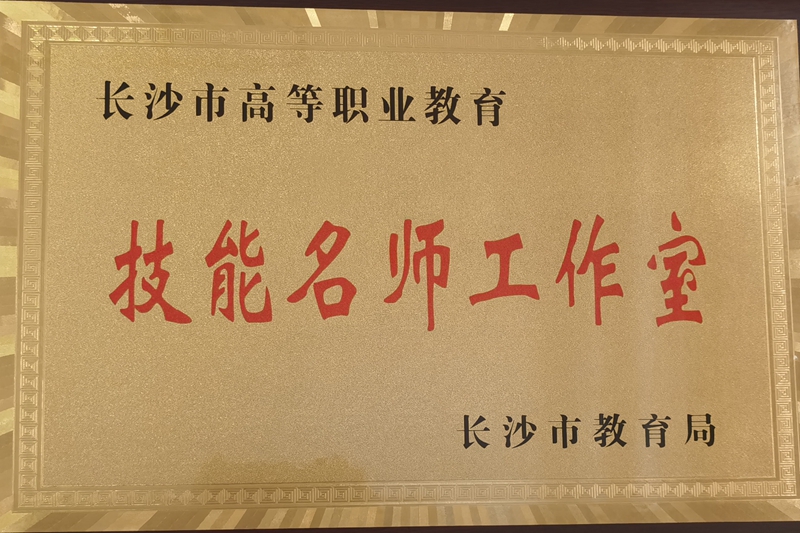 长沙市高等职业教育
技能名师工作室
长沙市教育局